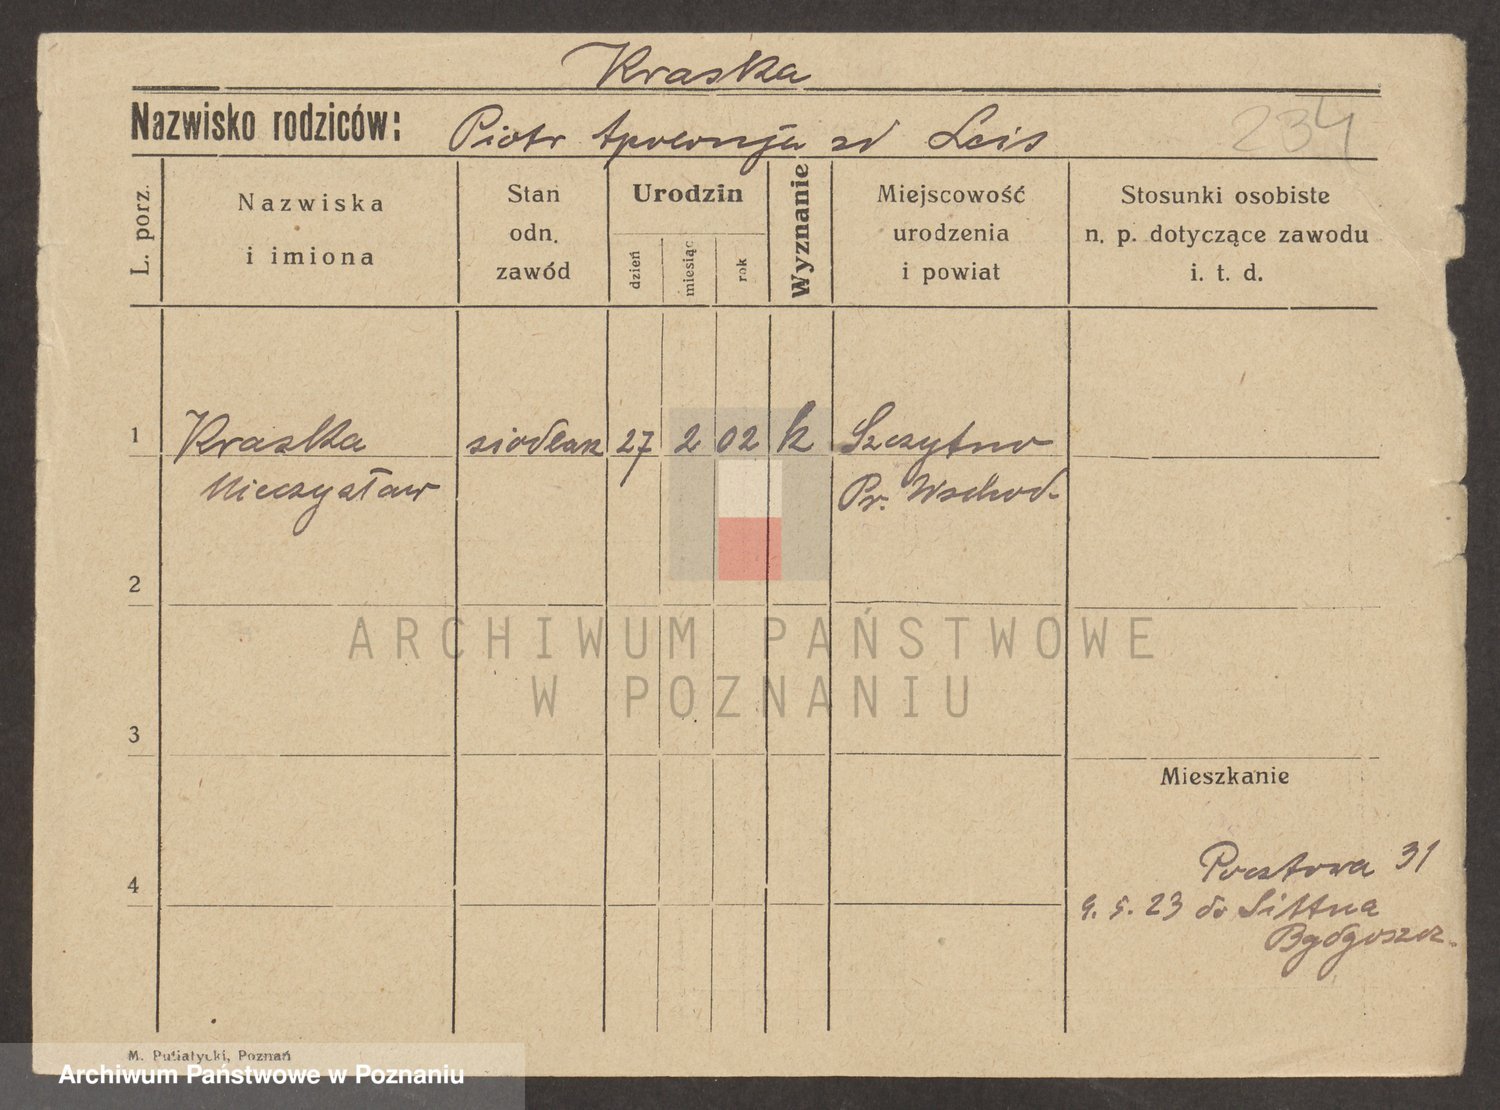 Kraska
Nazwisko rodziców: Piotr Apolonja zd Leis
234
L. porz.
Nazwiska
i imiona
Stan
odn.
zawód
Urodzin
dzień
miesiąc
rok
Wyznanie
Miejscowość
urodzenia
i powiat
Stosunki osobiste
n. p. dotyczące zawodu
i. t. d.
1 Kraska siodlarz 27 2 02 k Szczytno
Mieczysław Pr. Wschod.
2
ARCHIWUM PAŃSTWOWE
W POZNANIU
3
Mieszkanie
4
Pocztowa 31
9. 5. 23 do
Bydgoszcz.
M. Putiatycki, Poznań
Archiwum Państwowe w Poznaniu